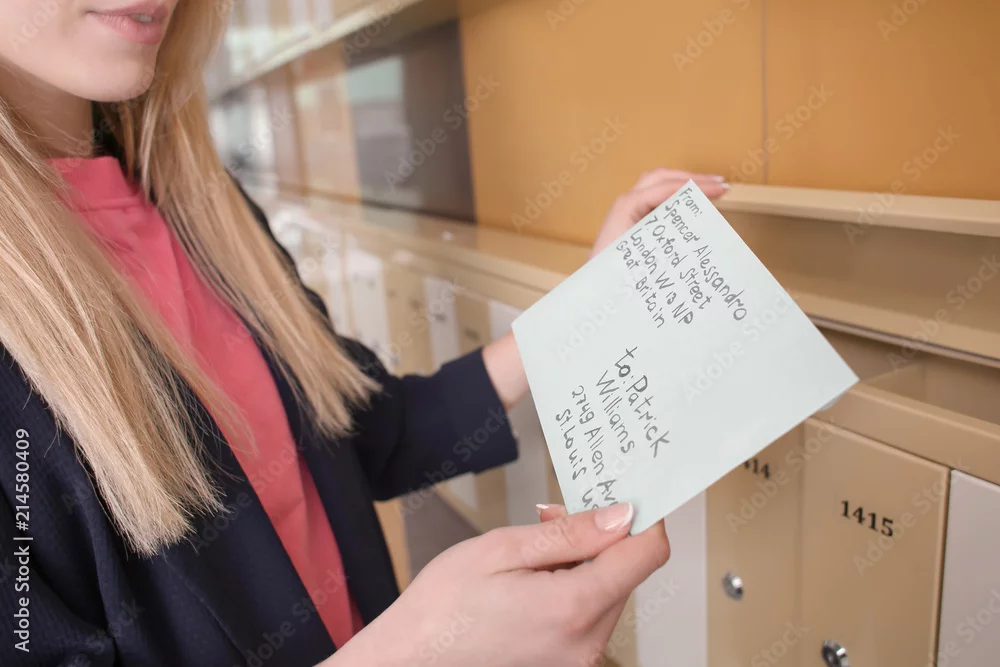 From:
Spencer Alessandro
7 Oxford Street
London W13 NP
Great Britain
to: Patrick
Williams
2749 Allen Av
St. Louis
1415
Adobe Stock | #214580409